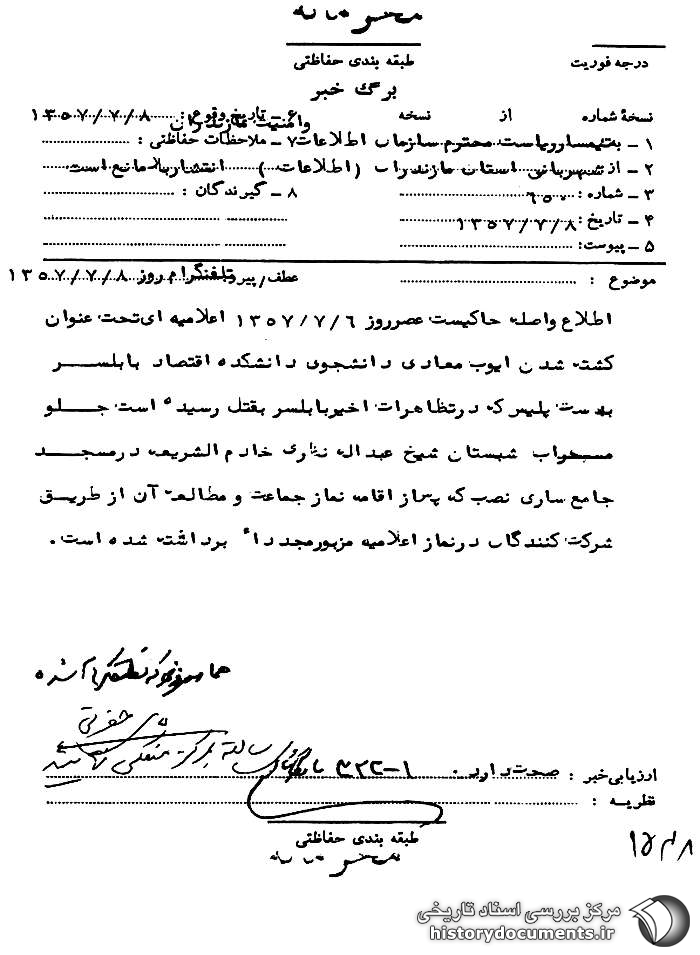 محرمانه
طبقه بندی حفاظتی
درجه فوریت
برگ خبر
نسخهٔ شماره از نسخه
۶ ـ تاریخ وقوع : ۱۳۵۷/۷/۸
۱ ـ به تیمسار ریاست محترم سازمان اطلاعات و امنیت مازندران
۷ ـ ملاحظات حفاظتی :
۲ ـ از شهربانی استان مازندران (اطلاعات) انتشار بلامانع است
۳ ـ شماره : ۶۵۰۰
۸ ـ گیرندگان :
۴ ـ تاریخ : ۱۳۵۷/۷/۸
۵ ـ پیوست :
موضوع :
عطف/پیرو تلفنگرام روز ۱۳۵۷/۷/۸
اطلاع واصله حاکیست عصرروز ۱۳۵۷/۷/۶ اعلامیه ای تحت عنوان
کشته شدن ایوب معادی دانشجوی دانشکده اقتصاد بابلسر
بدست پلیس که در تظاهرات اخیر بابلسر بقتل رسیده است جلو
شبستان شیخ عبداله نظری خادم الشریعه در مسجد
جامع ساری نصب که پس از اقامه نماز جماعت و مطالعه آن از طریق
شرکت کنندگان در نماز اعلامیه مزبور مجدداً برداشته شده است.
ارزیابی خبر : صحت دارد . ۱-۳۲۲
نظریه :
طبقه بندی حفاظتی
محرمانه
مرکز بررسی اسناد تاریخی
historydocuments.ir